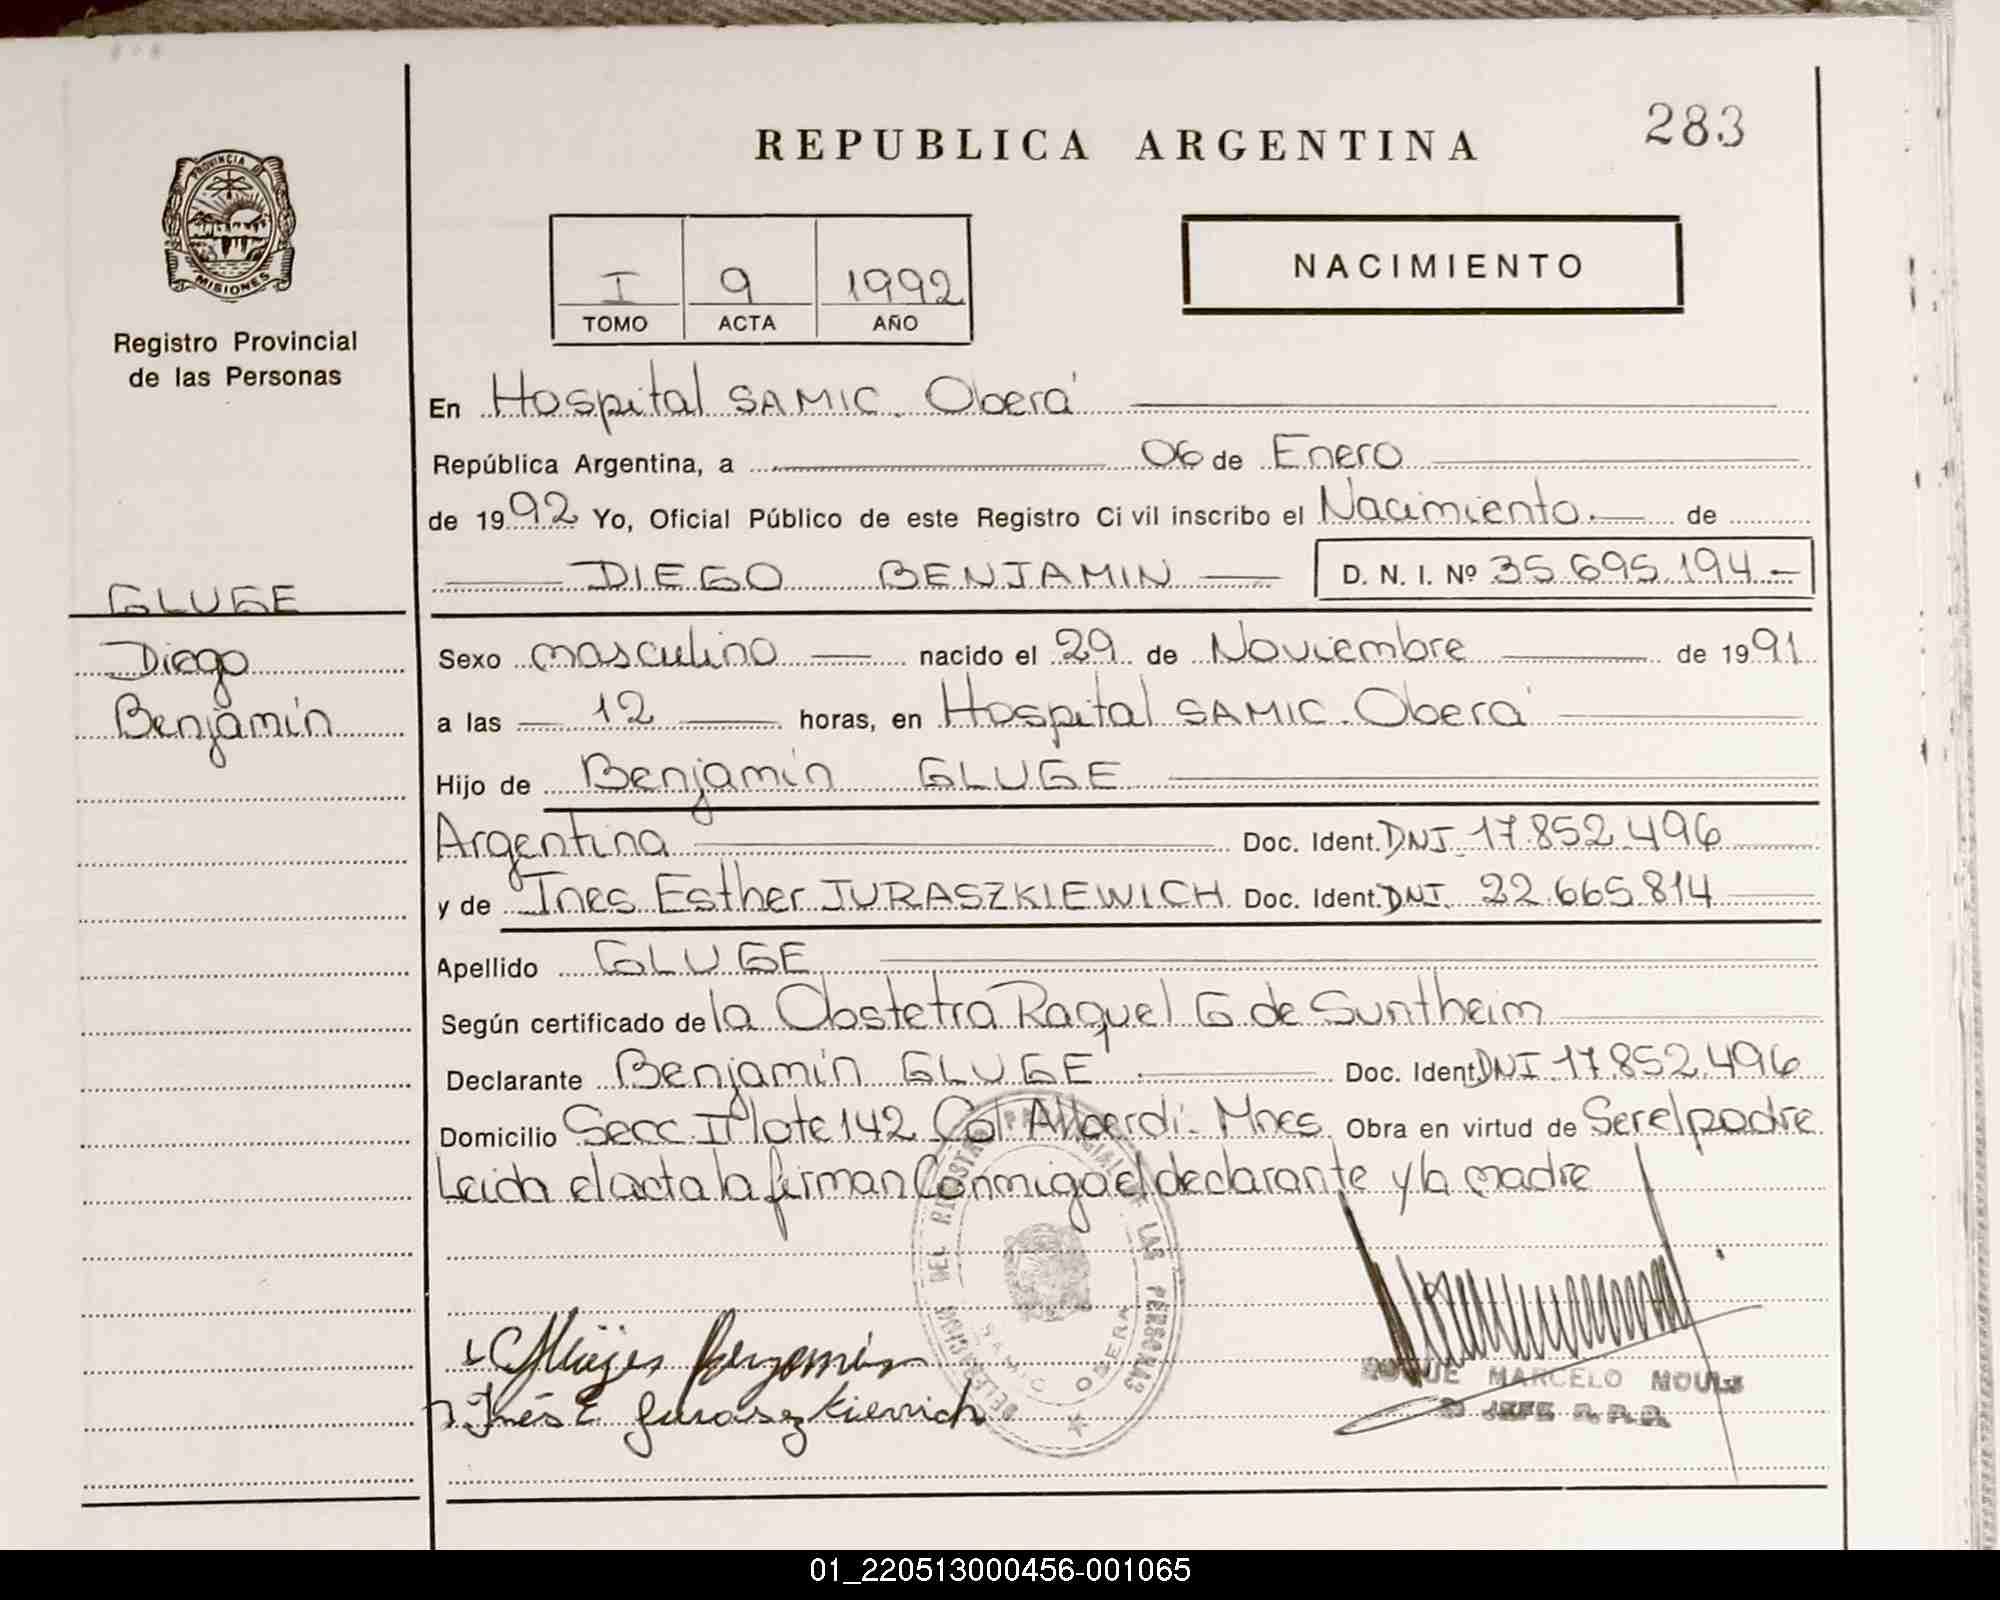 283
REPUBLICA ARGENTINA
PROVINCIA DE
MISIONES
Registro Provincial
de las Personas
I 9 1992
TOMO ACTA AÑO
NACIMIENTO
En Hospital SAMIC. Oberá
República Argentina, a 06 de Enero
de 1992 Yo, Oficial Público de este Registro Civil inscribo el Nacimiento. de
DIEGO BENJAMIN D. N. I. Nº 35.695.194.-
GLUGE
Diego
Benjamín
Sexo masculino nacido el 29 de Noviembre de 1991
a las 12 horas, en Hospital SAMIC. Oberá
Hijo de Benjamín GLUGE
Argentina Doc. Ident. DNI. 17.852.496
y de Ines Esther JURASZKIEWICH Doc. Ident. DNI. 22.665.814
Apellido GLUGE
Según certificado de la Obstetra Raquel G de Suntheim
Declarante Benjamín GLUGE Doc. Ident. DNI 17.852.496
Domicilio Secc. II lote 142 Col Alberdi. Mnes. Obra en virtud de Ser el padre
Leida el acta la firman Conmigo el declarante y la madre
DELEGACION DEL REGISTRO PROVINCIAL DE LAS PERSONAS
SAMIC OBERA
Benjamín
Inés E Juraszkiewich
ROQUE MARCELO
JEFE R.P.P.
01_220513000456-001065